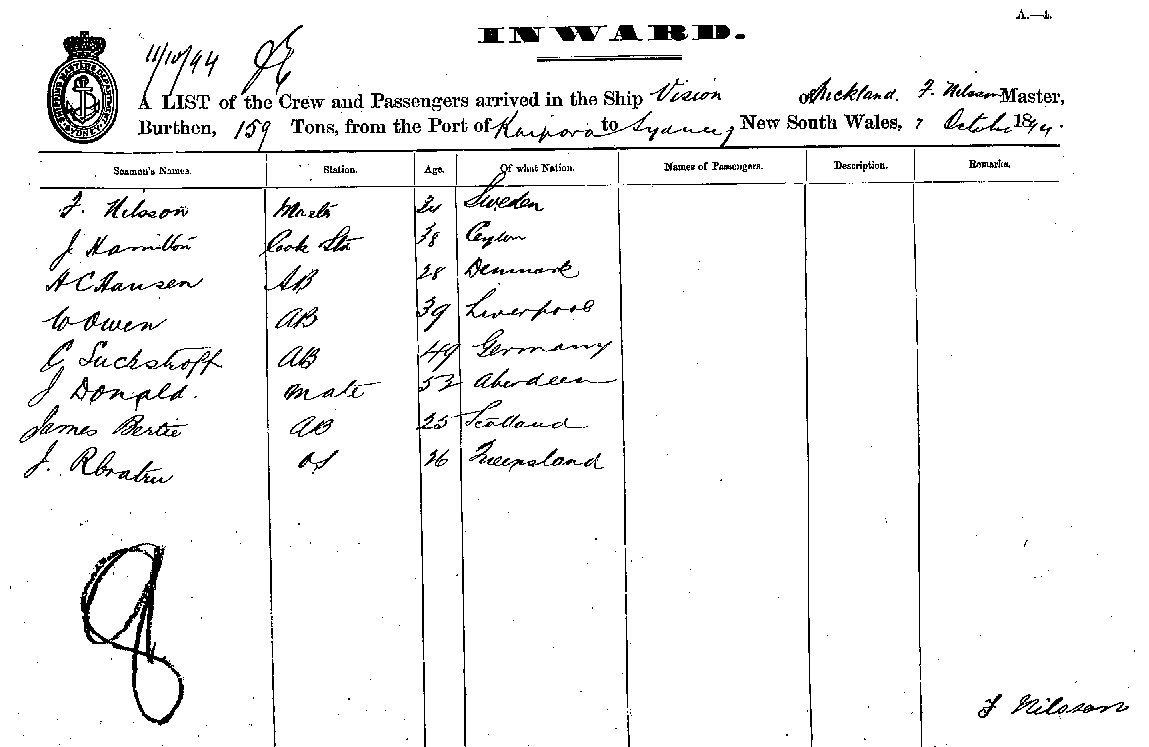 A.—4.
INWARD.
11/10/94
A LIST of the Crew and Passengers arrived in the Ship Vision of Auckland. F. Nilsson Master,
Burthen, 159 Tons, from the Port of Kaipara to Sydney New South Wales, 7 October 1894.
Seamen's Names. Station. Age. Of what Nation. Names of Passengers. Description. Remarks.
F. Nilsson Master Sweden
J Hamilton Cook Std 38 Ceylon
H C Hansen AB 28 Denmark
W Owen AB 39 Liverpool
C Suckstorff AB 49 Germany
J Donald. Mate 53 Aberdeen
James Bertie AB 25 Scotland
J. OS 26 Queensland
F Nilsson